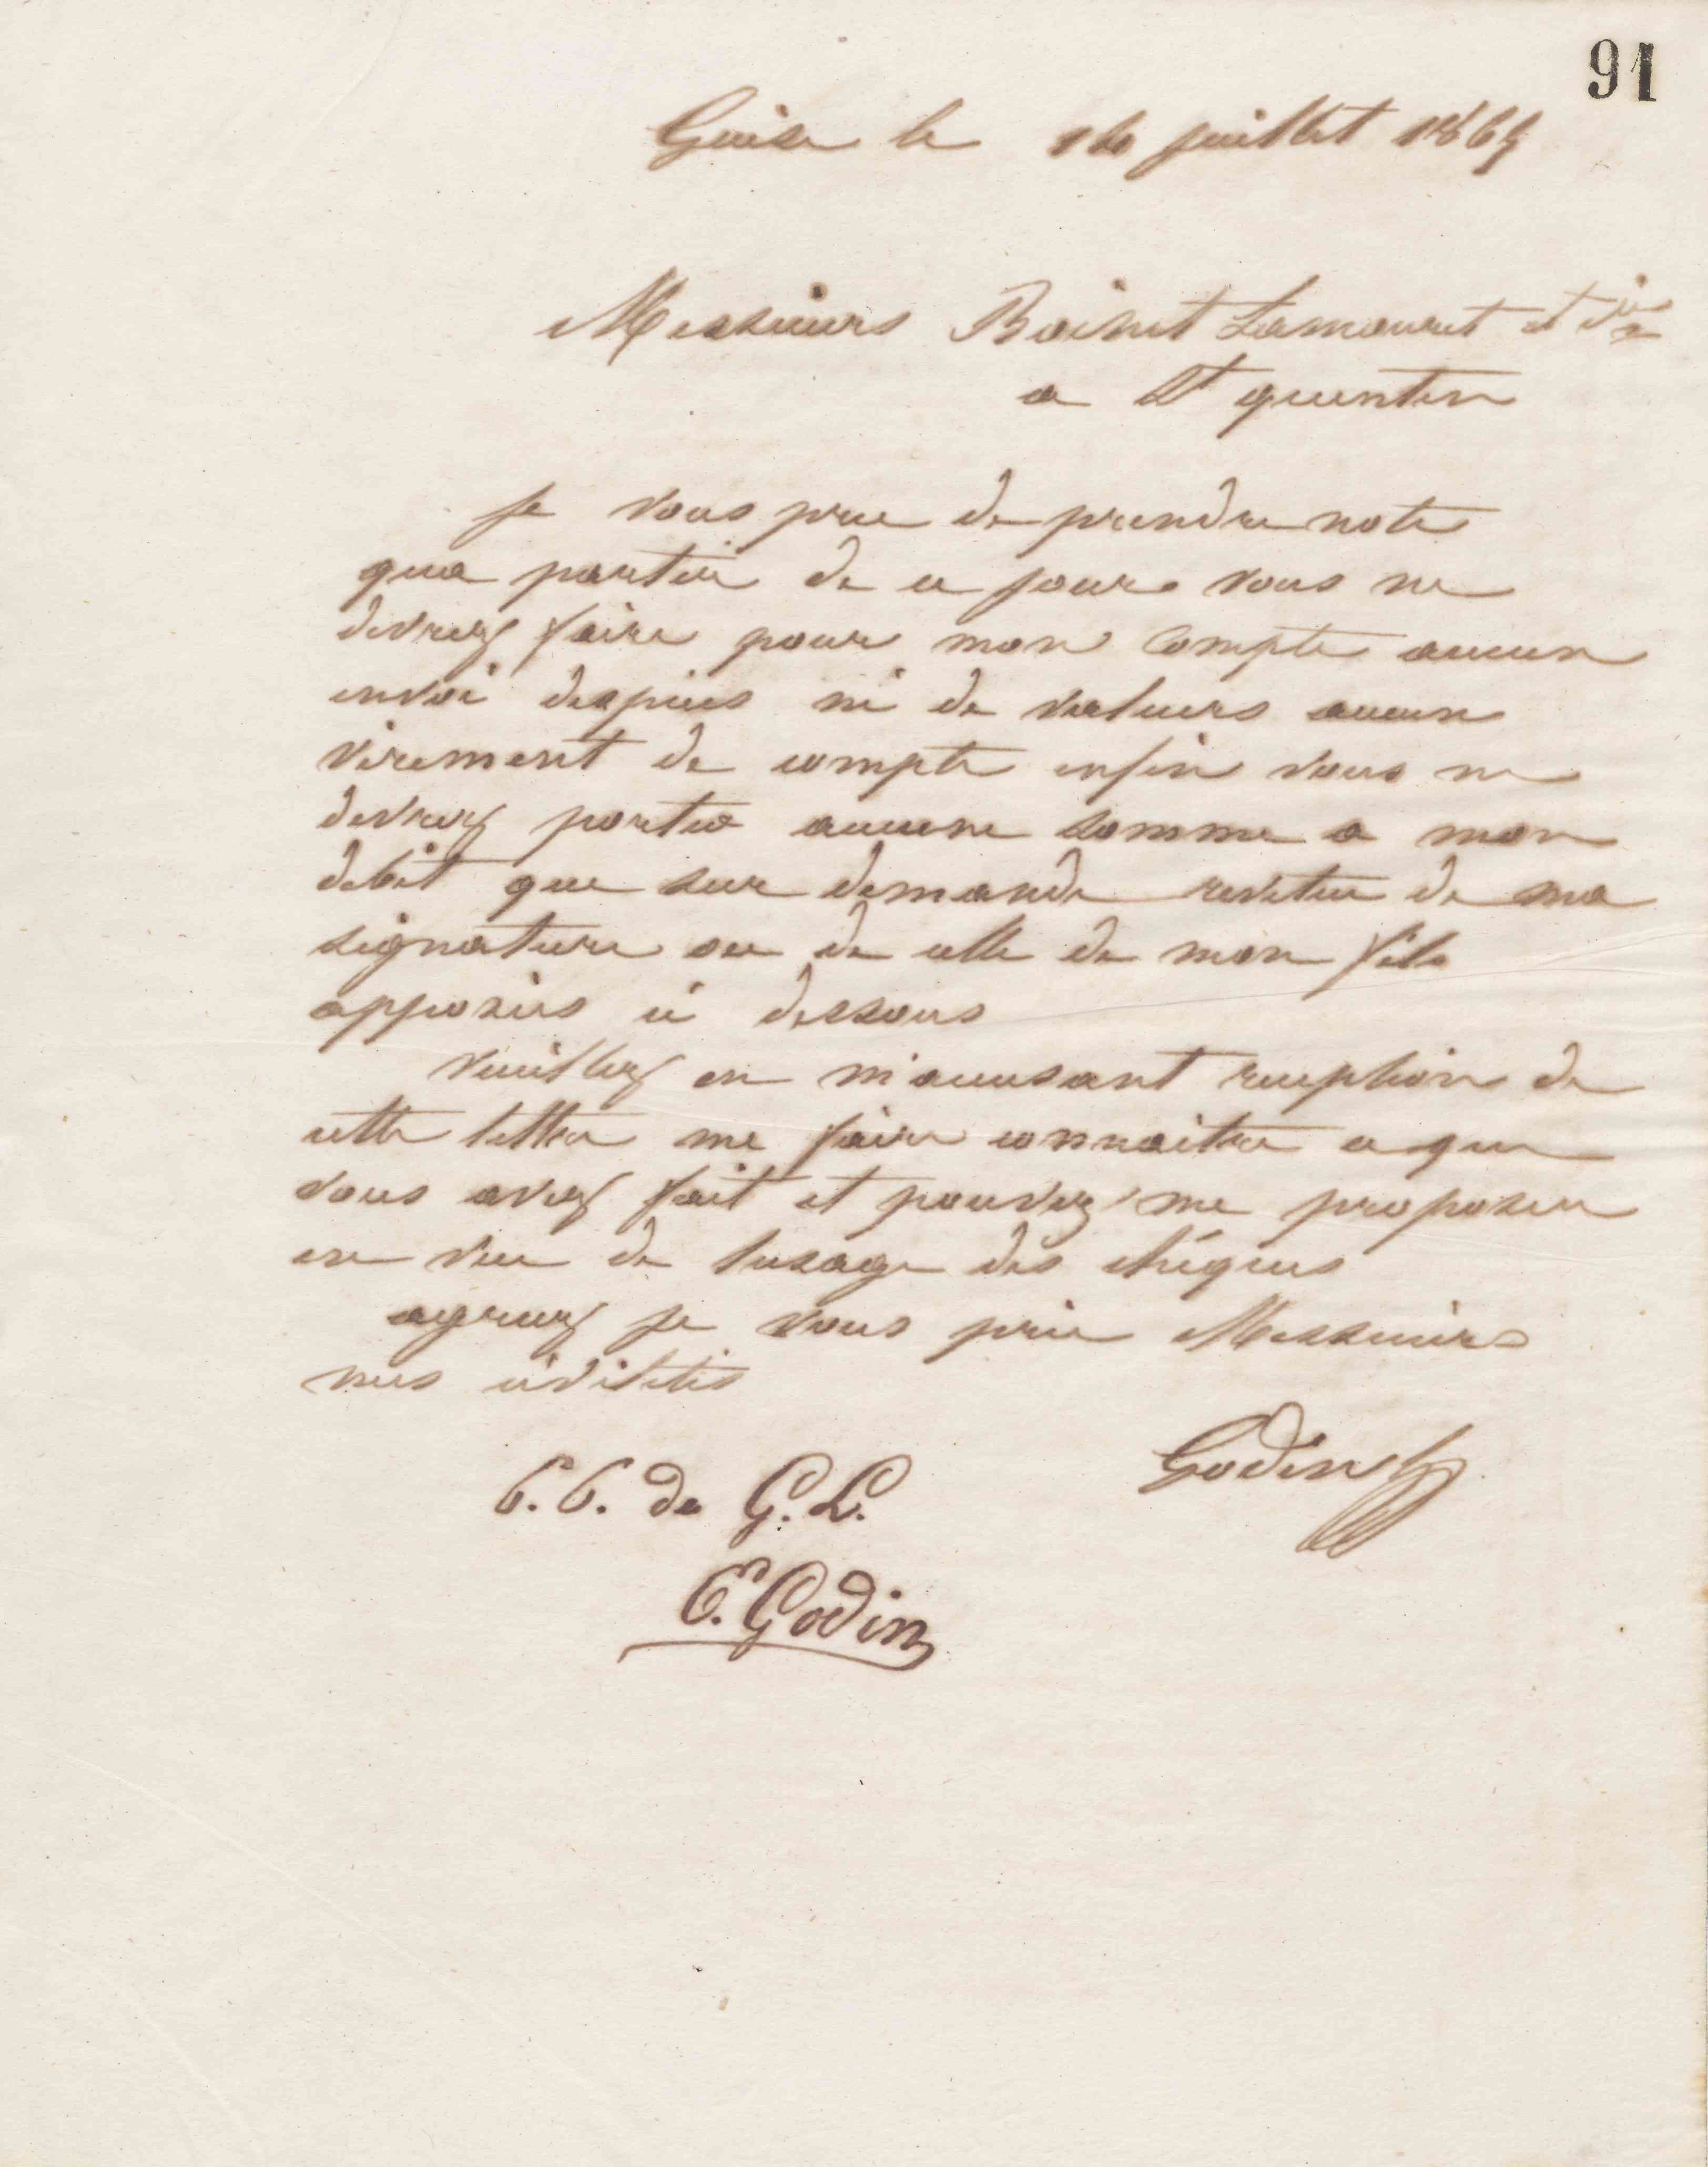 91
Guise le juillet 1865
Messieurs Boinet Lamouret et Cie
a St quentin
je vous prie de prendre note
qua partir de ce jour vous ne
devrez faire pour mon compte aucun
envoi despeces ni de valeurs aucun
virement de compte enfin vous ne
devrez porter aucune somme a mon
debit que sur demande revetue de ma
signature ou de celle de mon fils
apposées ci dessous
veuillez en m'accusant reception de
cette lettre me faire connaitre ce que
vous avez fait et pouvez me proposer
en vue de lusage des chéques
agreez je vous prie Messieurs
mes civilités
Godin
E. E. de G. L.
E. Godin